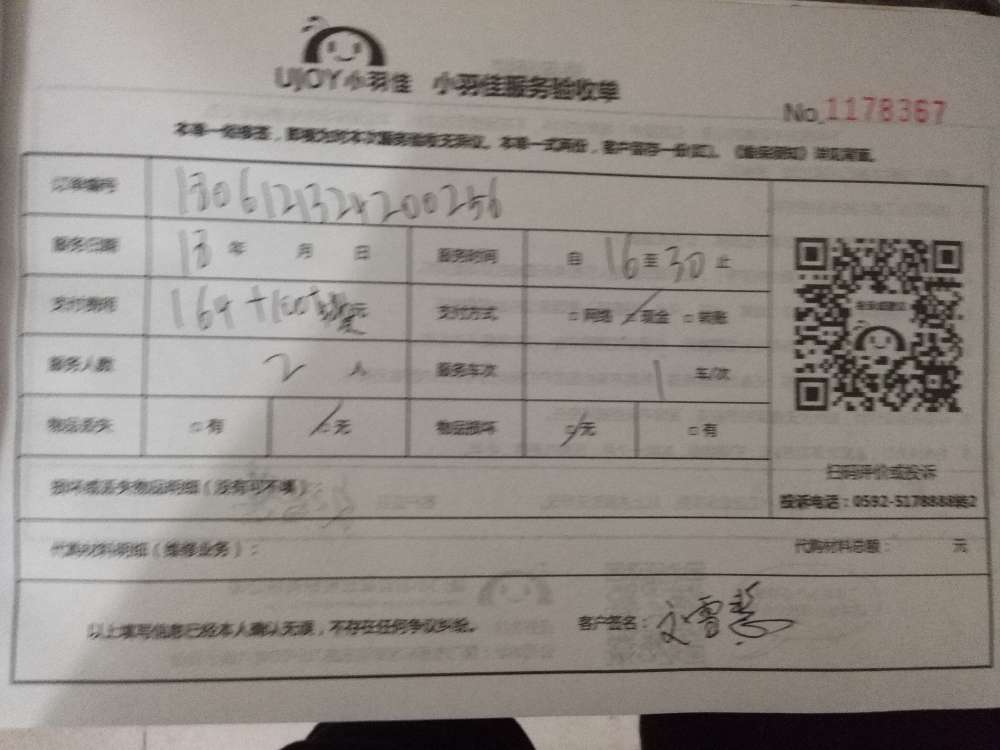 UJOY小羽佳 小羽佳服务验收单
No.1178367
本单一经签签，即视为对本次服务验收无异议。本单一式两份，客户留存一份(红)。《服务须知》详见背面。
订单编号 1306121324200256
服务日期 13 年 月 日 服务时间 自 16 至 30 止
支付费用 164+100 元 支付方式 □网络 □现金 □转账
服务人数 2 人 服务车次 1 车/次
物品丢失 □有 □无 物品损坏 □无 □有
损坏或丢失物品明细（没有可不填）：
扫码评价或投诉
投诉电话：0592-5178888转2
代购材料明细（维修业务）： 代购材料总额： 元
以上填写信息已经本人确认无误，不存在任何争议纠纷。 客户签名：